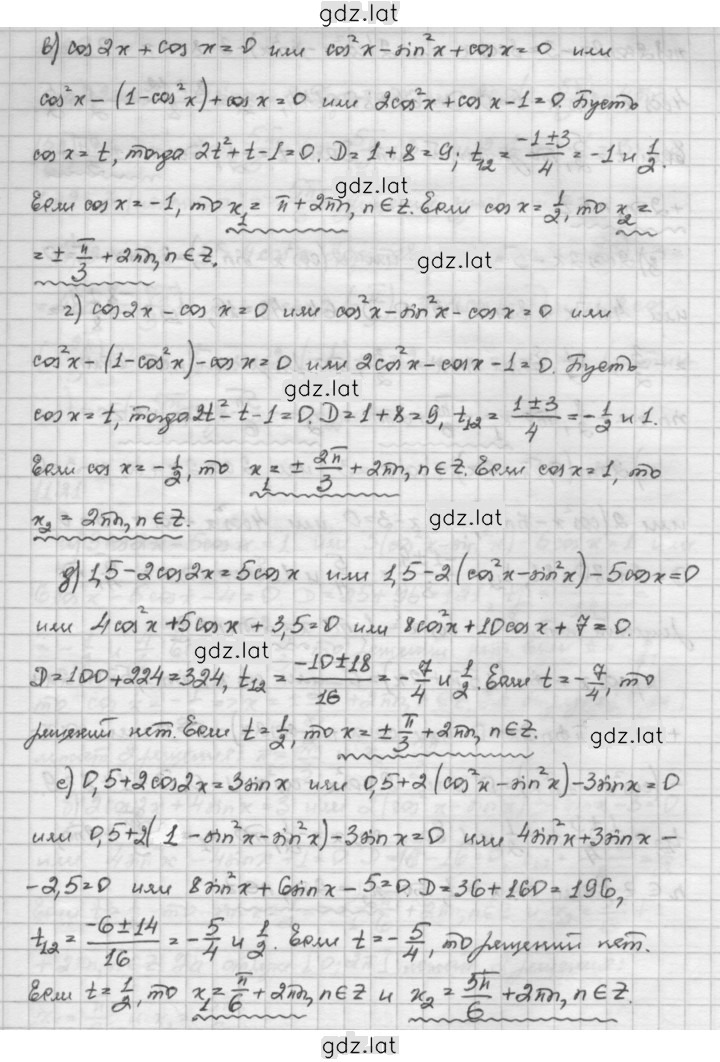 gdz.lat
в) cos2x + cos x = 0 или cos²x - sin²x + cosx = 0 или
cos²x - (1-cos²x) + cosx = 0 или 2cos²x + cosx - 1 = 0. Пусть
cosx = t, тогда 2t² + t - 1 = 0. D = 1 + 8 = 9; t₁₂ = (-1±3)/4 = -1 и 1/2.
gdz.lat
Если cosx = -1, то x₁ = π + 2πn, n∈Z. Если cosx = 1/2, то x₂ =
= ± π/3 + 2πn, n∈Z.
gdz.lat
г) cos2x - cos x = 0 или cos²x - sin²x - cosx = 0 или
cos²x - (1-cos²x) - cosx = 0 или 2cos²x - cosx - 1 = 0. Пусть
gdz.lat
cosx = t, тогда 2t² - t - 1 = 0. D = 1 + 8 = 9, t₁₂ = (1±3)/4 = -1/2 и 1.
Если cos x = -1/2, то x₁ = ± 2π/3 + 2πn, n∈Z. Если cosx = 1, то
x₂ = 2πn, n∈Z.
gdz.lat
д) 1,5 - 2cos2x = 5cosx или 1,5 - 2(cos²x - sin²x) - 5cosx = 0
или 4cos²x + 5cosx + 3,5 = 0 или 8cos²x + 10cosx + 7 = 0.
gdz.lat
D = 100 + 224 = 324, t₁₂ = (-10±18)/16 = -7/4 и 1/2. Если t = -7/4, то
решений нет. Если t = 1/2, то x = ± π/3 + 2πn, n∈Z.
gdz.lat
е) 0,5 + 2cos2x = 3sinx или 0,5 + 2(cos²x - sin²x) - 3sinx = 0
или 0,5 + 2(1 - sin²x - sin²x) - 3sinx = 0 или 4sin²x + 3sinx -
- 2,5 = 0 или 8sin²x + 6sinx - 5 = 0. D = 36 + 160 = 196,
t₁₂ = (-6±14)/16 = -5/4 и 1/2. Если t = -5/4, то решений нет.
Если t = 1/2, то x₁ = π/6 + 2πn, n∈Z и x₂ = 5π/6 + 2πn, n∈Z.
gdz.lat